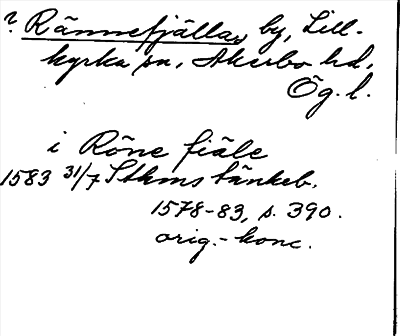 ? Rännefjälla, by, Lill-
kyrka sn, Åkerbo hd,
Ög. l.
i Röne fiäle
1583 31/7 Sthms tänkeb.
1578-83, s. 390.
orig.-konc.